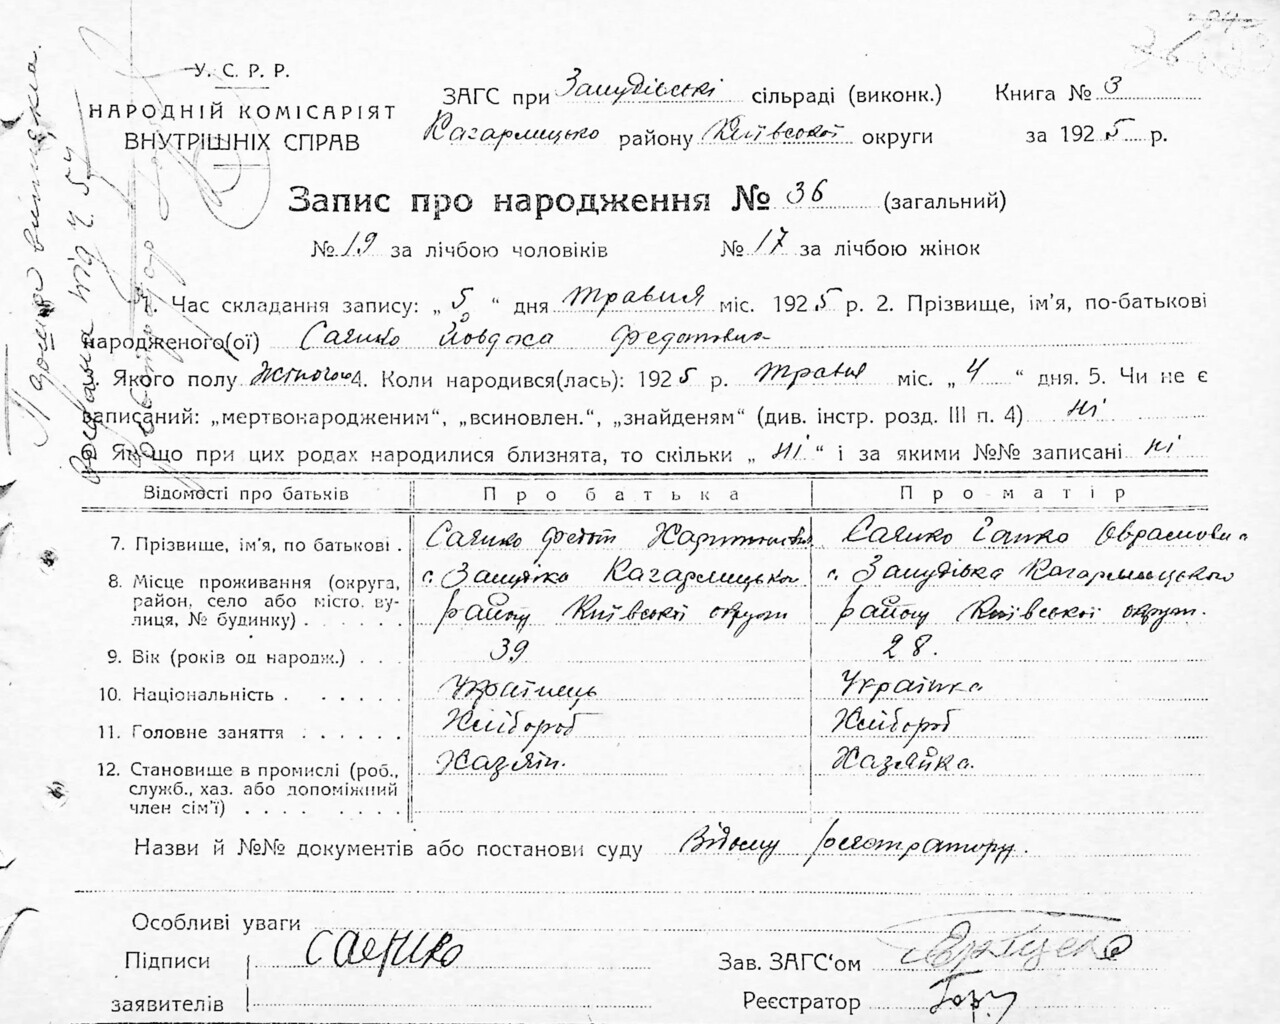 У. С. Р. Р.
НАРОДНІЙ КОМІСАРІЯТ
ВНУТРІШНІХ СПРАВ
ЗАГС при сільраді (виконк.) Книга № 3
Кагарлицько району Київської округи за 1925 р.
Запис про народження № 36 (загальний)
№ 19 за лічбою чоловіків № 17 за лічбою жінок
1. Час складання запису: „5“ дня травня міс. 1925 р. 2. Прізвище, ім'я, по-батькові
народженого(ої) Йовдоха Федотовна
Якого полу жіночого 4. Коли народився(лась): 1925 р. травня міс. „4“ дня. 5. Чи не є
записаний: „мертвонародженим“, „всиновлен.“, „знайденям“ (див. інстр. розд. III п. 4) ні
Якщо при цих родах народилися близнята, то скільки „ні“ і за якими №№ записані ні
Відомості про батьків Про батька Про матір
7. Прізвище, ім'я, по батькові . Федот
8. Місце проживання (округа, район, село або місто. вулиця, № будинку) . . . . . . с. Кагарлицького району Київської округи с. Кагарлицького району Київської округи.
9. Вік (років од народж.) . . . 39 28.
10. Національність . . . . . . Українець Українка
11. Головне заняття . . . . . . Хлібороб Хлібороб
12. Становище в промислі (роб., служб., хаз. або допоміжний член сім'ї) . . . . . . . Хазяїн. Хазяйка.
Назви й №№ документів або постанови суду Відому реєстратору.
Особливі уваги
Підписи
заявителів
Зав. ЗАГС'ом
Реєстратор